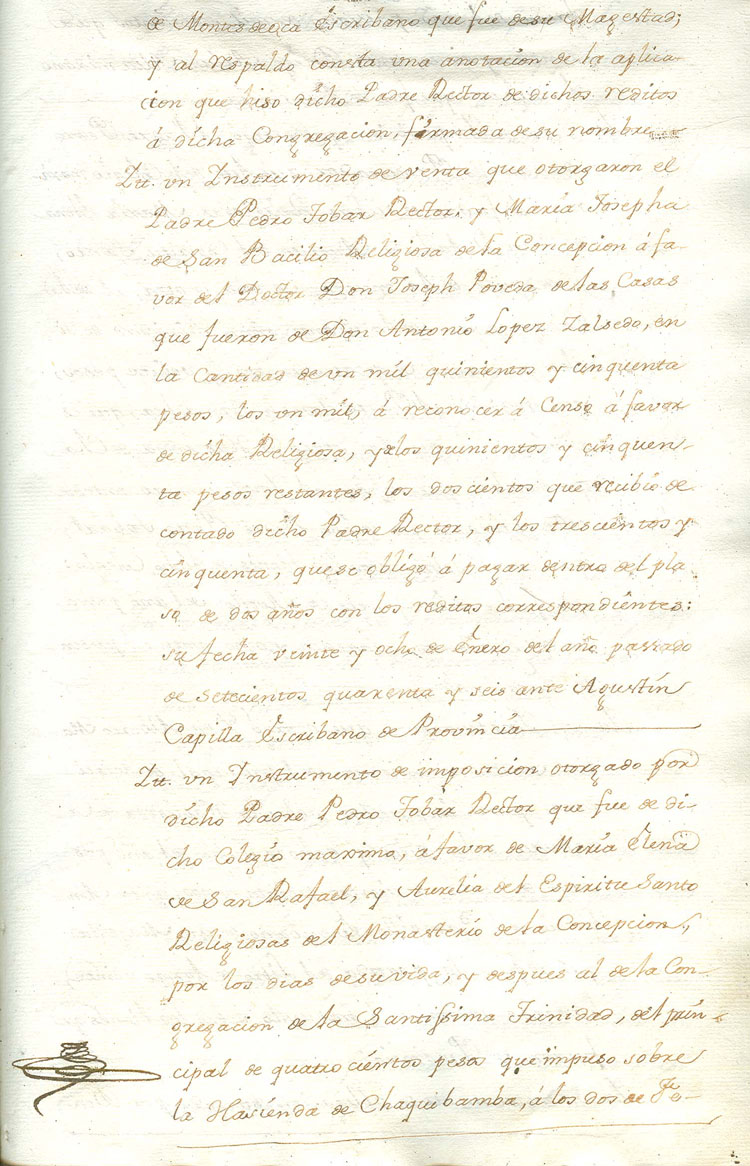 de Montesdeoca Escribano que fue de su Magestad;
y al respaldo consta una anotacion de la aplica-
cion que hiso dicho Padre Rector de dichos reditos
á dicha Congregacion, firmada de su nombre
Itt. vn Instrumento de venta que otorgaron el
Padre Pedro Tobar Rector, y María Josepha
de San Bacilio Religiosa de la Concepcion á fa-
vor del Doctor Don Joseph Poveda de las Casas
que fueron de Don Antonio Lopez Zalsedo, en
la Cantidad de vn mil quinientos y cinquenta
pesos, los vn mil, á reconocer á Censo á favor
de dicha Religiosa, y a los quinientos y cinquen-
ta pesos restantes, los doscientos que recibió de
contado dicho Padre Rector, y los trescientos y
cinquenta, que se obligó á pagar dentro del pla-
so de dos años con los reditos correspondientes:
su fecha veinte y ocho de Enero del año passado
de setecientos quarenta y seis ante Agustín
Capilla Escribano de Província
Itt. vn Instrumento de imposicion otorgado por
dicho Padre Pedro Tobar Rector que fue de di-
cho Colegio maximo, á favor de María Elena
de San Rafael, y Aurelia del Espiritu Santo
Religiosas del Monasterio de la Concepcion,
por los dias de su vida, y despues al de la Con-
gregacion de la Santissima Trinidad, del prin-
cipal de quatrocientos pesos que impuso sobre
la Hasienda de Chaquibamba, á los dos de Fe-